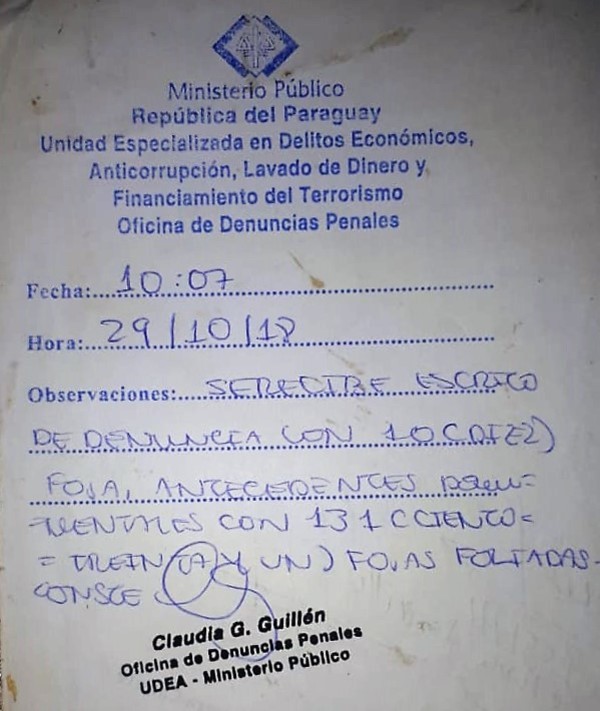 Ministerio Público
República del Paraguay
Unidad Especializada en Delitos Económicos,
Anticorrupción, Lavado de Dinero y
Financiamiento del Terrorismo
Oficina de Denuncias Penales
Fecha: 10:07
Hora: 29/10/18
Observaciones: SE RECIBE ESCRITO
DE DENUNCIA CON 10 (DIEZ)
FOJA, ANTECEDENTES DOCU=
=MENTALES CON 131 (CIENTO=
= TREINTA Y UN) FOJAS FOLIADAS-
CONSTE
Claudia G. Guillén
Oficina de Denuncias Penales
UDEA - Ministerio Público